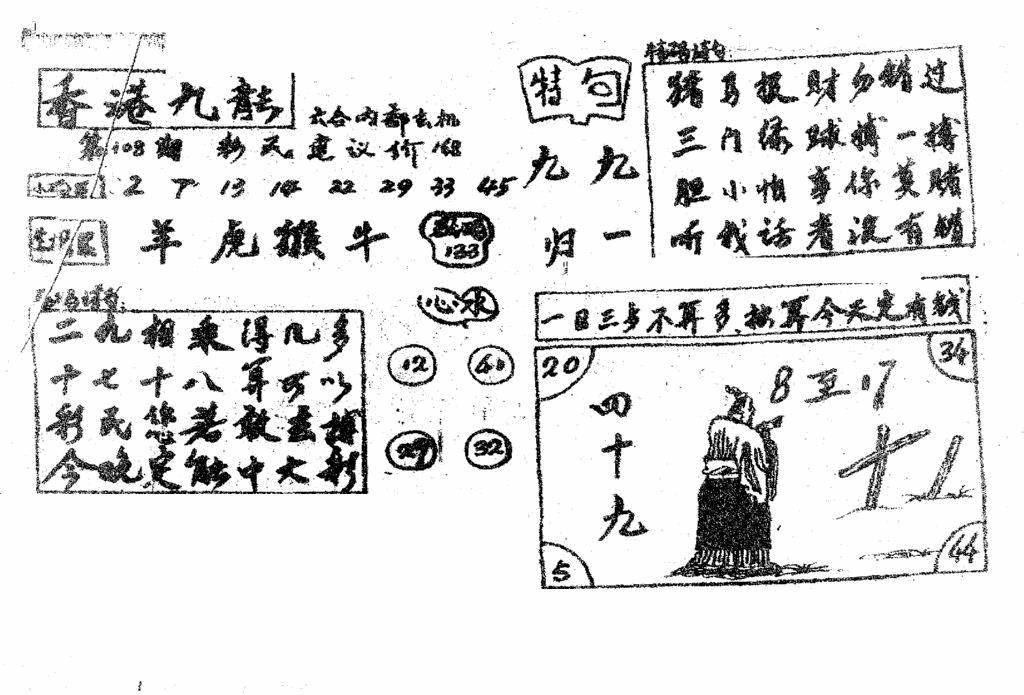 香港九龍
六合内部玄机
第108期 彩民 建议价 168
2 7 13 14 22 29 33 45
羊 虎 猴 牛
133
心水
二九相乘得几多
十七十八算可以
彩民您若敢去搏
今晚定能中大彩
12 41
29 32
特句
九九
归一
特码诗句
猪马投财勿错过
三门绿球搏一搏
胆小怕事你莫赌
听我话者没有错
一日三步不算多 按算今天定有钱
20 34
8 至 17
四十九
5 44